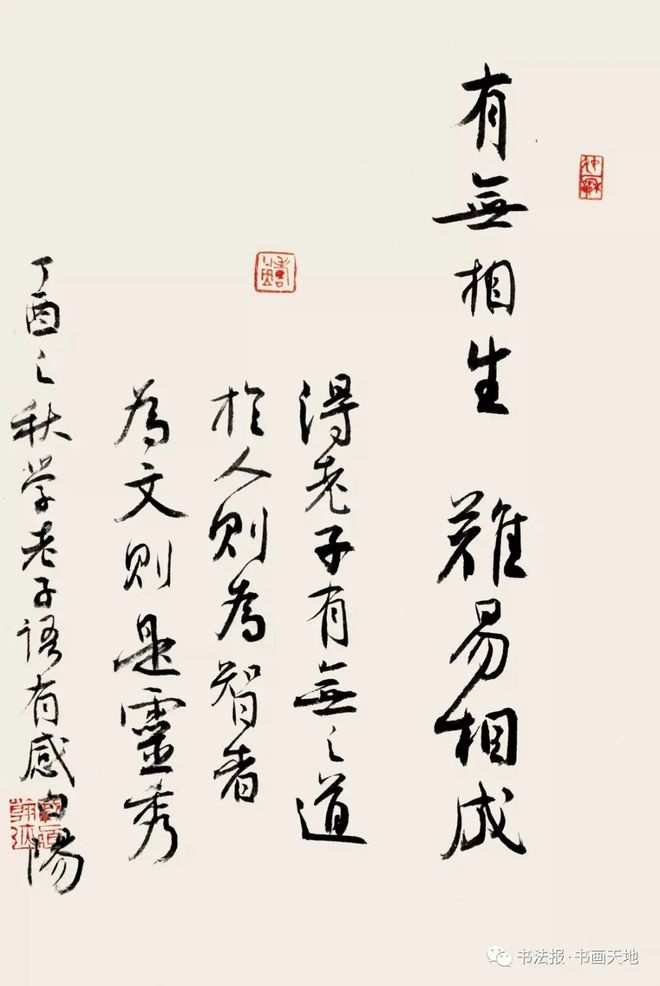 有無相生 難易相成
得老子有無之道
於人則為智者
為文則是靈秀
丁酉之秋学老子语有感白陽
书法报·书画天地